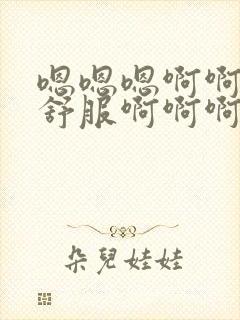 嗯嗯嗯啊啊
舒服啊啊啊
朵兒娃娃